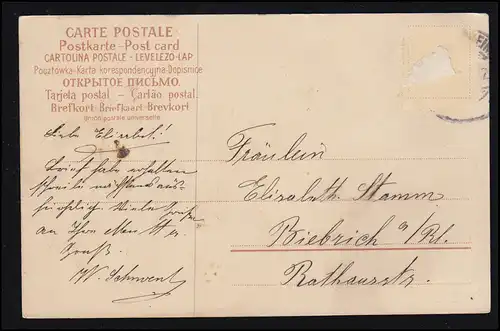 CARTE POSTALE
Postkarte - Post card
CARTOLINA POSTALE - LEVELEZO-LAP
Pocztówka - Karta korespondencyjna - Dopisnice
ОТКРЫТОЕ ПИСЬМО.
Tarjeta postal - Cartão postal.
Brefkort - Briefkaart - Brevkort
Union postale universelle
Liebe Elisabet!
Brief habe erhalten
schreibe
Viele Grüße
an Ihre
Gruß
W. Schwent
Fräulein
Elisabeth Stamm
Biebrich a/Rh.
Rathausstr.